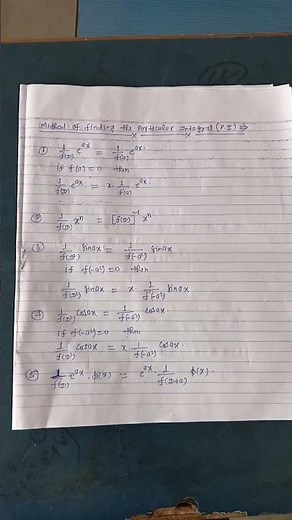 Method of finding the Particular Integral (P.I) ⇒
① 1/f(D) e^ax = 1/f(a) e^ax.
if f(a) = 0 then
1/f(D) e^ax = x. 1/f(a) e^ax.
② 1/f(D) x^n = [f(D)]^-1 x^n
③ 1/f(D²) sinax = 1/f(-a²) sinax
if f(-a²) = 0 then
1/f(D²) sinax = x. 1/f(-a²) sinax
④ 1/f(D²) cosax = 1/f(-a²) cosax.
if f(-a²) = 0 then
1/f(D²) cosax = x 1/f(-a²) cosax.
⑤ 1/f(D) e^ax. φ(x) = e^ax 1/f(D+a) φ(x).